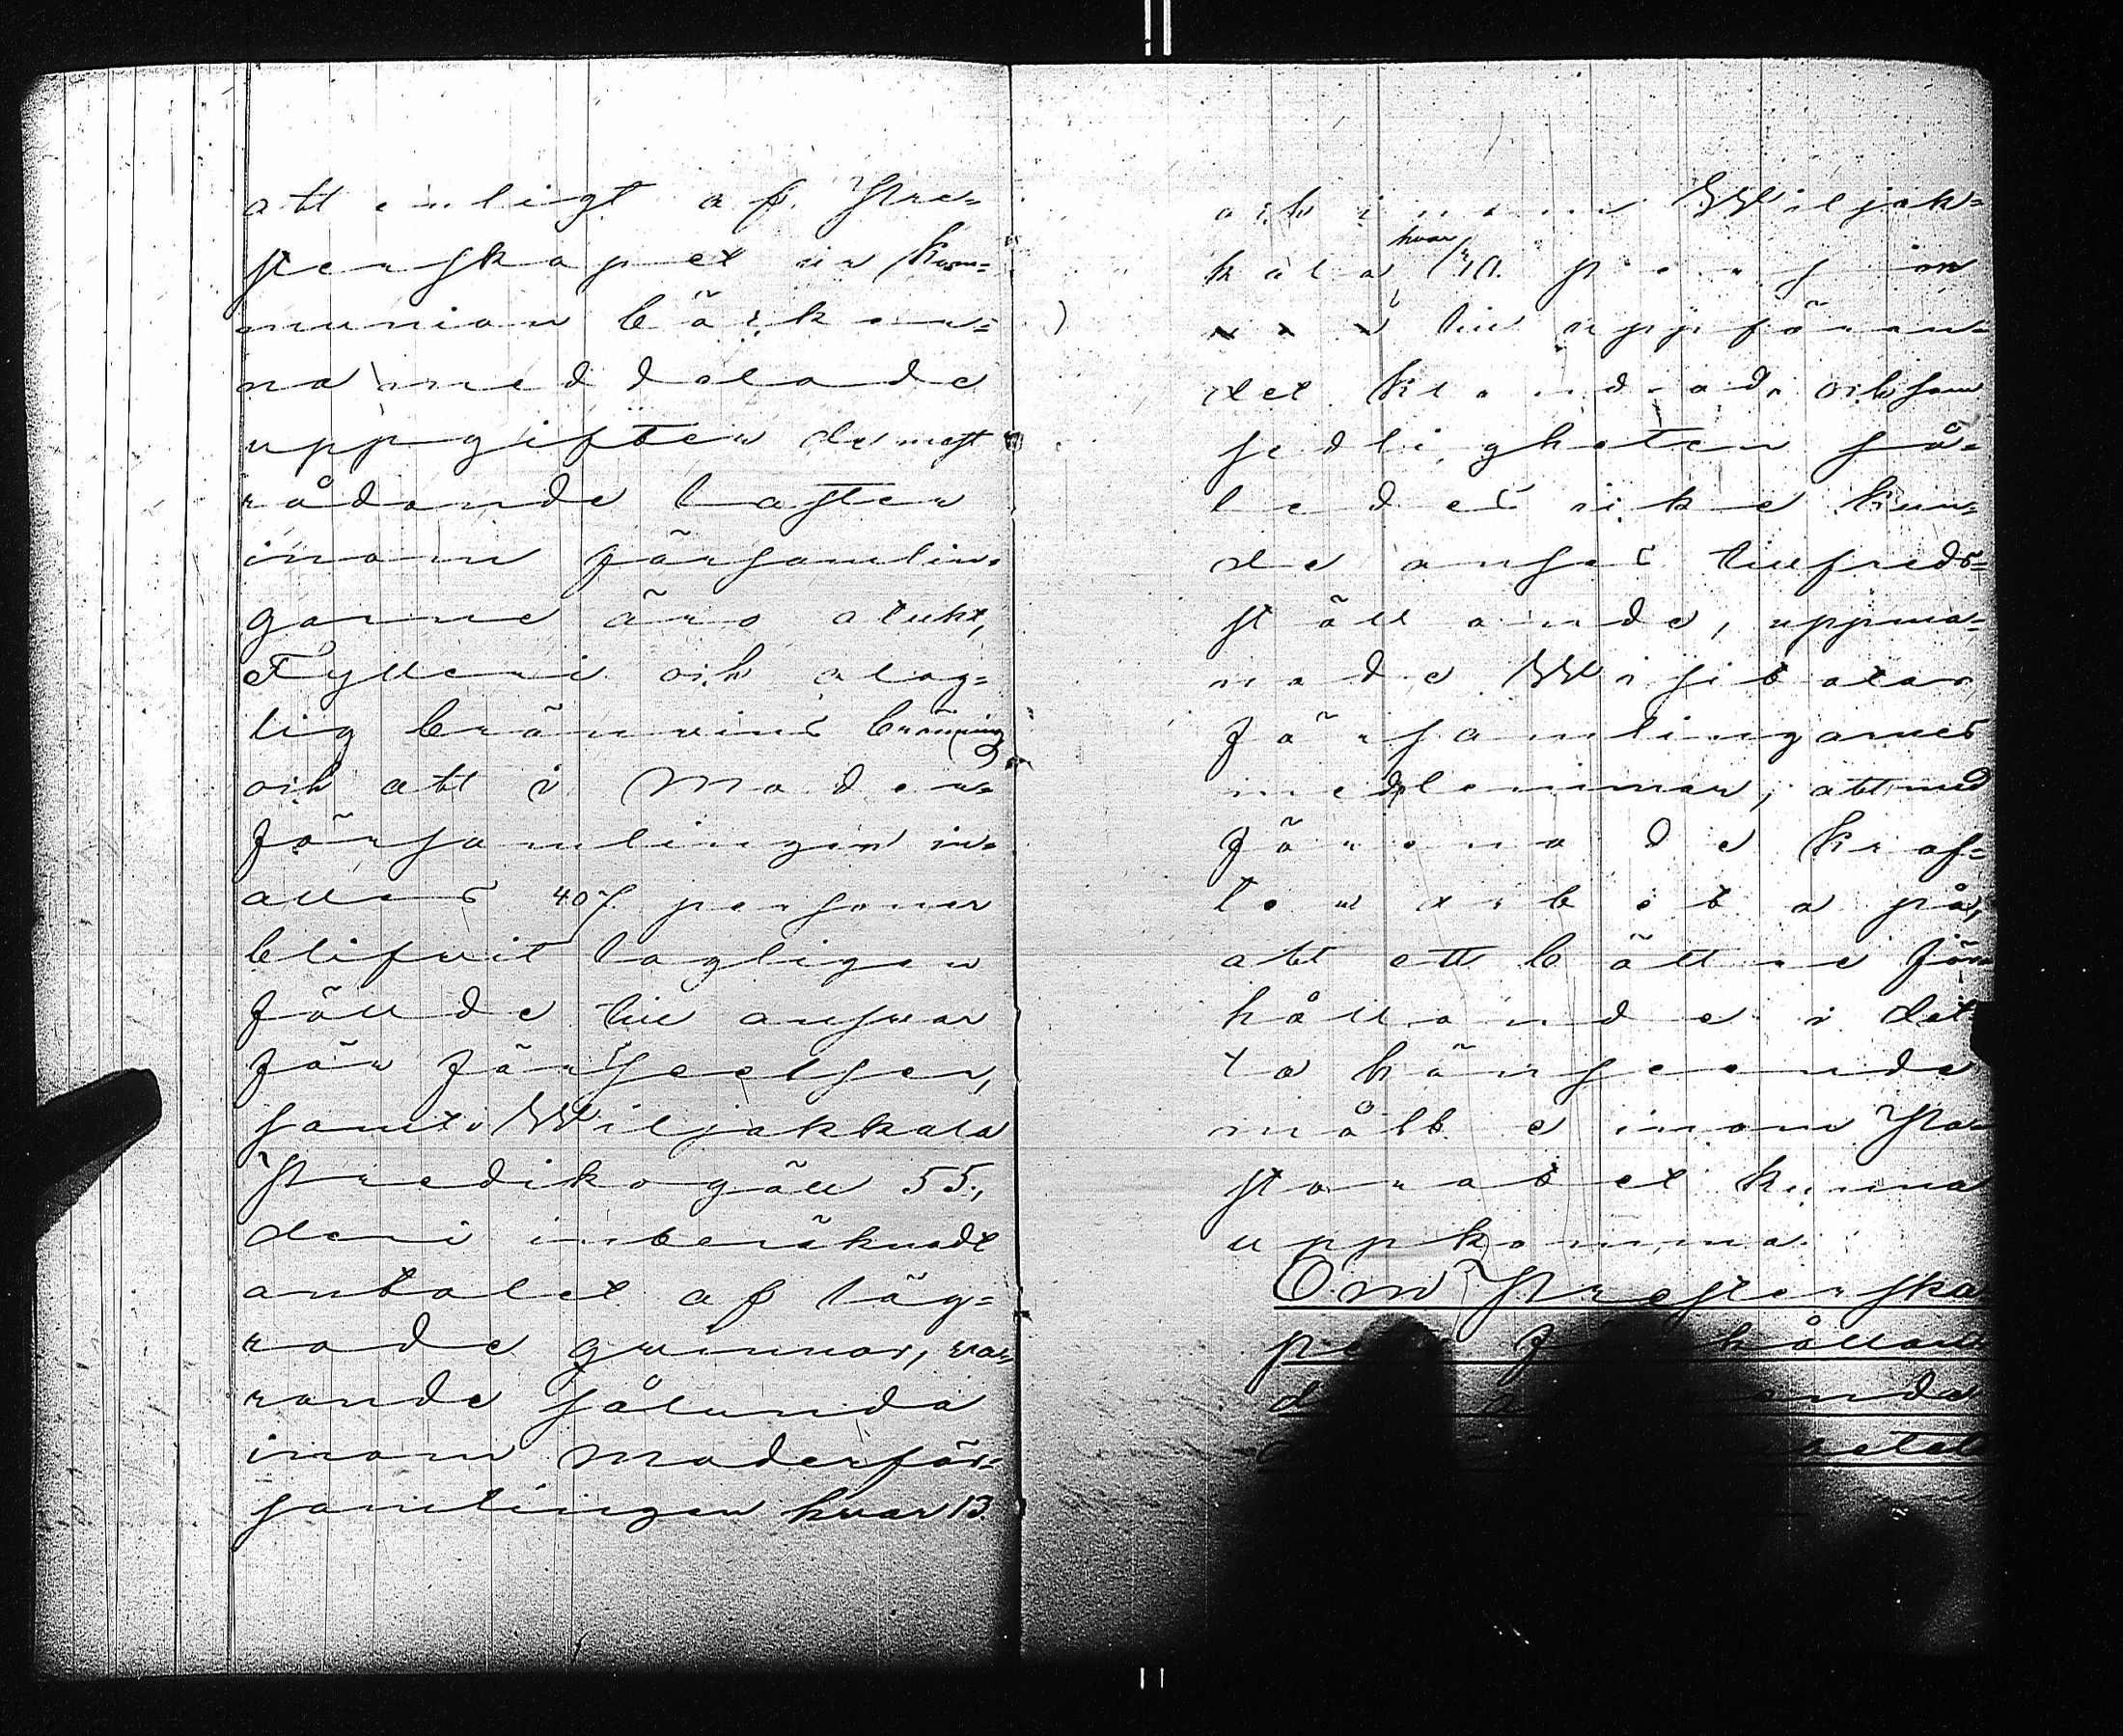 att enligt af Pre-
sterskapet ur Kom-
munion böcker-
na meddelade
uppgifter de mest
rådande laster
inom församlin-
garne äro otukt,
Fylleri och olag-
lig brännvins bränning
och att i Moder-
församlingen in-
alles 407 personer
blifvit lagligen
fällde till answar
för förseelser,
samt i Wiljakkala
Predikogäll 55,
deri inberäknadt
antalet af läg-
rade qwinnor, wa-
rande sålunda
inom moderför-
samlingen hvar 13.
och inom Wiljak-
kala hvar person
till uppföran-
det klandrad och som
sedligheten så-
ledes icke kun-
de anses tillfreds-
ställande, uppma-
nade Wisitator
församlingarnes
medlemmar, att med
förenade kraf-
ter arbeta på,
att ett bättre för-
hållande i det-
ta hänseende
måtte inom Pa-
storatet kunna
uppkomma.
Om Presterska
hållan
ende
betet